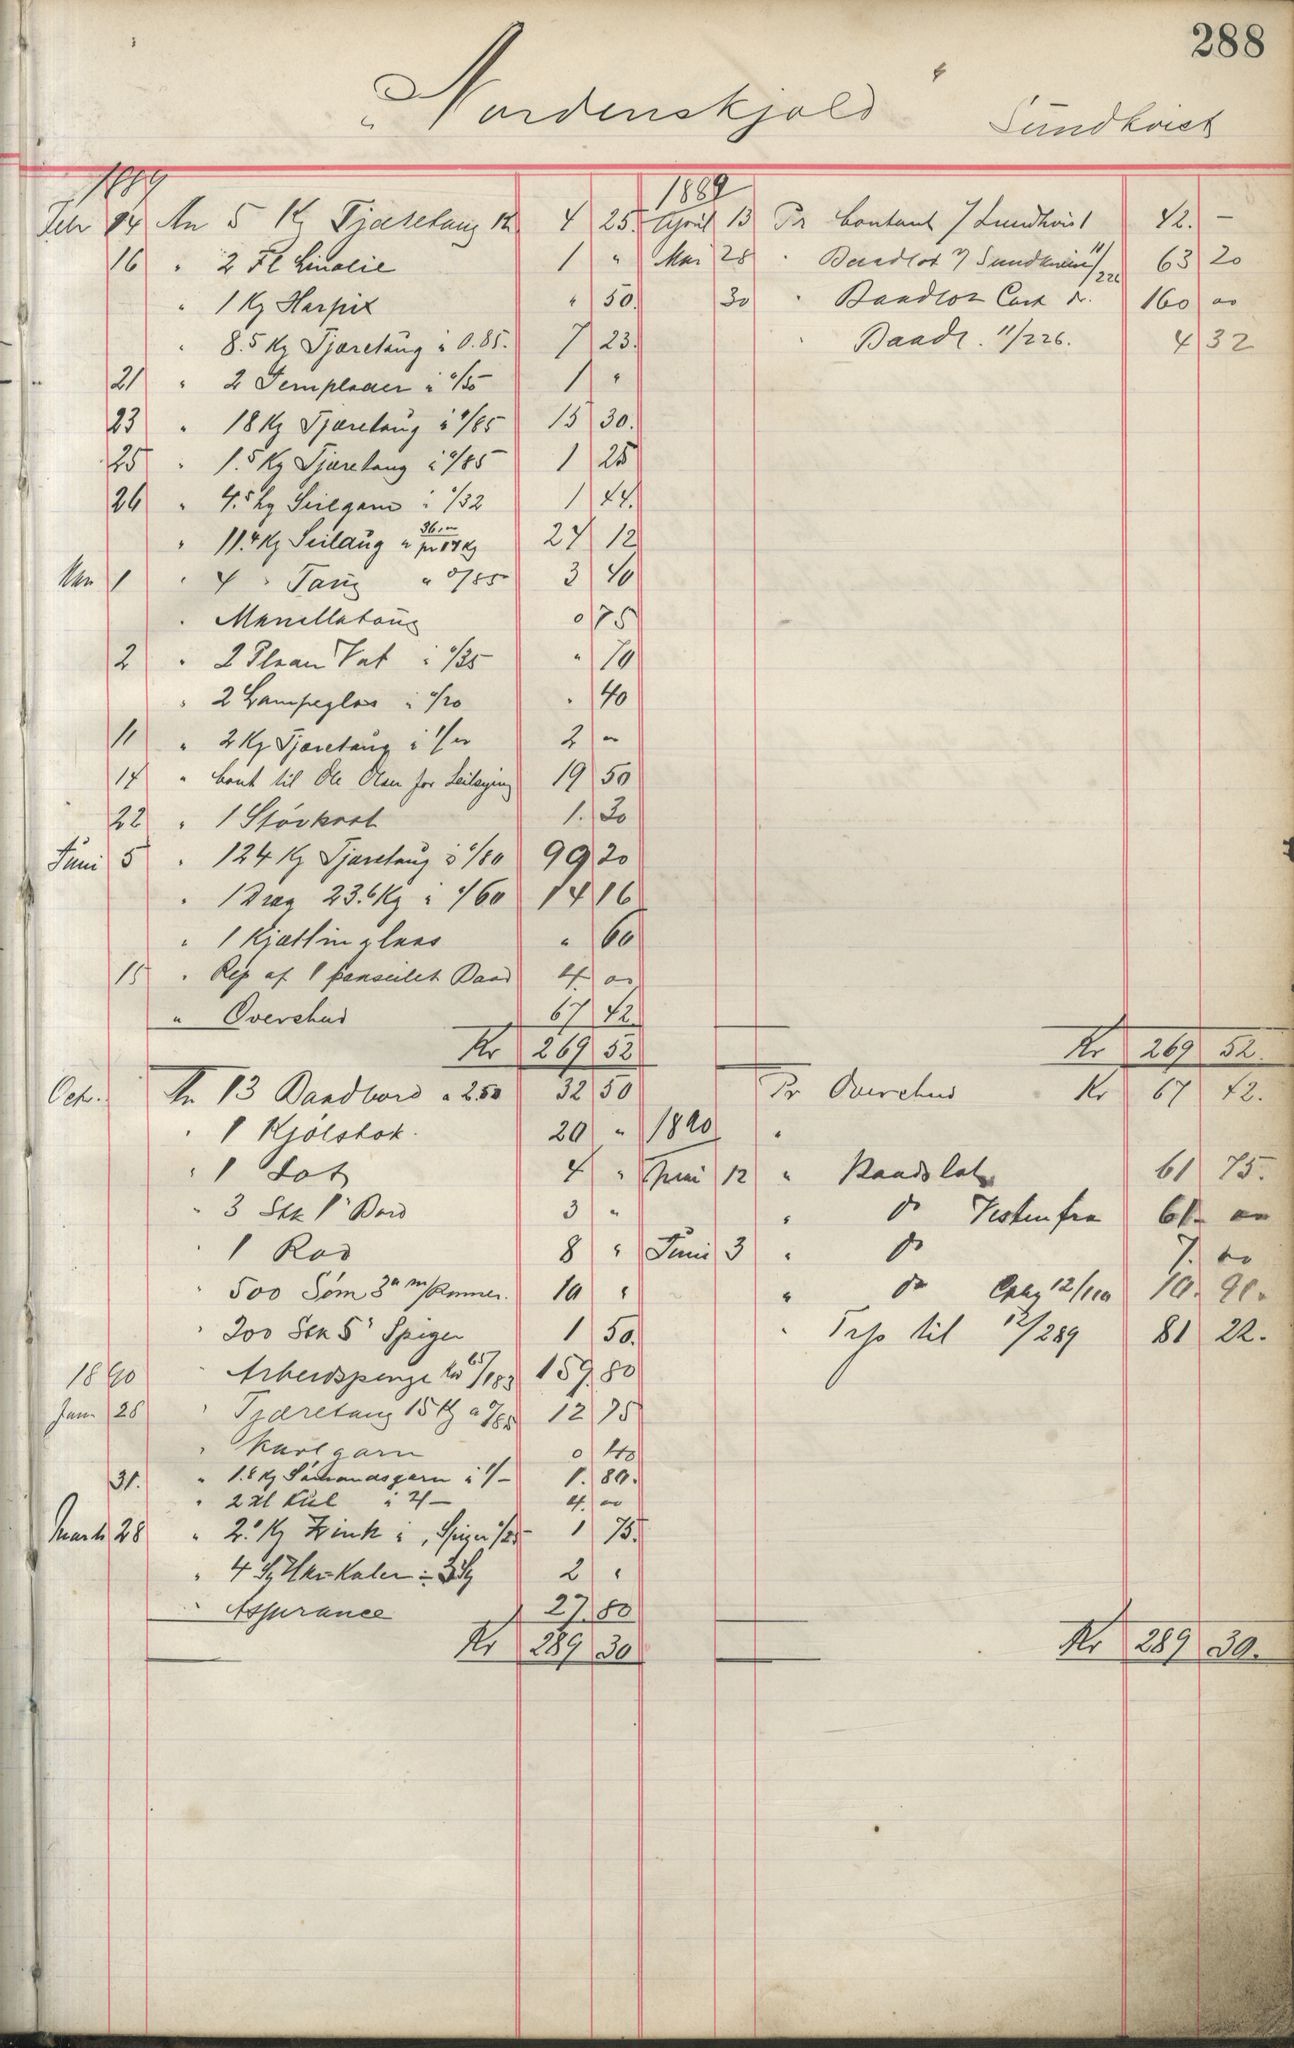 288
"Nordenskjold" Sundkvist
1889
Febr 14 An 5 Kg Tjæretaug Kr 4 25.
16 " 2 Fl Linolie 1 "
" 1 Kg Harpix " 50.
" 8.5 Kg Tjæretaug à 0.85. 7 23.
21 " 2 à 0/50 1 "
23 " 18 Kg Tjæretaug à 0/85 15 30.
25 " 1.5 Kg Tjæretaug à 0/85 1 25
26 " 4.5 hg Seilgarn à 0/32 1 44.
" 11.4 Kg Seildug à 36.00 pr 17 Kg 24 12
Mar 1 " 4 " Taug " 0/85 3 40
" Manillataug 0 75
2 " 2 Vat à 0/35 " 70
" 2 Lampeglas à 0/20 " 40
11 " 2 Kg Tjæretaug à 1/00 2 00
14 " Cont til Ole Olsen for 19 50
22 " 1 Støvkost 1. 30
Juni 5 " 124 Kg Tjæretaug à 0/80 99 20
" 1 Drag 23.6 Kg à 0/60 14 16
" 1 " 60
15 " Rep af 1 Baad 4. 00
" Overskud 67 42
Kr 269 52
Octr. An 13 Baadbord à 2.50 32 50
" 1 Kjølstok. 20 "
" 1 Lot 4 "
" 3 Stk 1" Bord 3 "
" 1 Rod 8 "
" 500 Søm 3" m/Ronner. 10 "
" 200 Stk 5" Spiger 1 50.
1890 " Arbeidspenge 65/183 159. 80
Jan 28 " Tjæretaug 15 Kg à 0/85 12 75
" garn 0 40
31. " 1.8 Kg Sømandsgarn à 1/- 1. 80.
" 2 Hl Kul à 2/- 4. 00
Marts 28 " 2.0 Kg Zink à , Spiger 0/25 1 75.
" 4 2 "
" Assurance 27. 80
Kr 289 30
1889
April 13 Pr Contant / Sundkvist 42. –
Mai 28 " Baadlot / Sundkvist 11/226 63 20
30 " Baadlot 160 00
" Baadl. 11/226. 4 32
Kr 269 52.
Pr Overskud Kr 67 42.
1890 "
12 " Baadslot 61 75.
" do 61. 00
Juni 3 " do 7. 00
" do 10. 91.
" Trp til 12/289 81 22.
Kr 289 30.